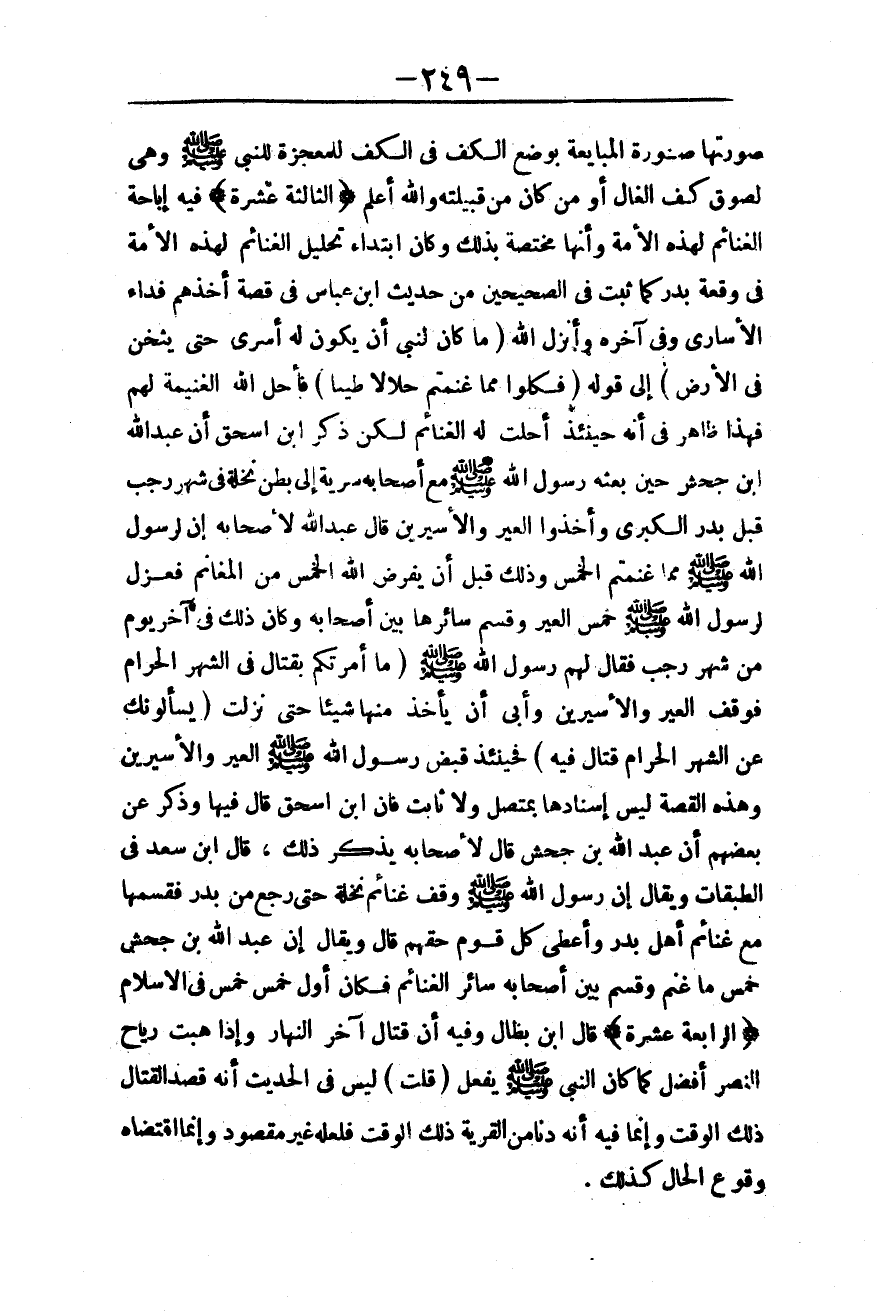 — ٢٤٩ —
صورتها صنورة المبايعة بوضع الكف فى الكف للمعجزة للنبي ﷺ وهى
لصوق كف الغال أو من كان من قبيلته والله أعلم ﴿ الثالثة عشرة ﴾ فيه إباحة
الغنائم لهذه الأمة وأنها مختصة بذلك وكان ابتداء تحليل الغنائم لهذه الأمة
فى وقعة بدر كما ثبت فى الصحيحين من حديث ابن عباس فى قصة أخذهم فداء
الأسارى وفى آخره وأنزل الله ( ما كان لنبي أن يكون له أسرى حتى يثخن
فى الأرض ) إلى قوله ( فكلوا مما غنمتم حلالا طيبا ) فأحل الله الغنيمة لهم
فهذا ظاهر فى أنه حينئذ أحلت له الغنائم لكن ذكر ابن اسحق أن عبدالله
ابن جحش حين بعثه رسول الله ﷺ مع أصحابه سرية إلى بطن نخلة فى شهر رجب
قبل بدر الكبرى وأخذوا العير والأسيرين قال عبدالله لأصحابه إن لرسول
الله ﷺ مما غنمتم الخمس وذلك قبل أن يفرض الله الخمس من المغانم فعزل
لرسول الله ﷺ خمس العير وقسم سائرها بين أصحابه وكان ذلك فى آخر يوم
من شهر رجب فقال لهم رسول الله ﷺ ( ما أمرتكم بقتال فى الشهر الحرام
فوقف العير والأسيرين وأبى أن يأخذ منها شيئا حتى نزلت ( يسألونك
عن الشهر الحرام قتال فيه ) فحينئذ قبض رسول الله ﷺ العير والأسيرين
وهذه القصة ليس إسنادها بمتصل ولا ثابت فان ابن اسحق قال فيها وذكر عن
بعضهم أن عبد الله بن جحش قال لأصحابه يذكر ذلك ، قال ابن سعد فى
الطبقات ويقال إن رسول الله ﷺ وقف غنائم نخلة حتى رجع من بدر فقسمها
مع غنائم أهل بدر وأعطى كل قوم حقهم قال ويقال إن عبد الله بن جحش
خمس ما غنم وقسم بين أصحابه سائر الغنائم فكان أول خمس خمس فى الاسلام
﴿ الرابعة عشرة ﴾ قال ابن بطال وفيه أن قتال آخر النهار وإذا هبت رياح
النصر أفضل كما كان النبي ﷺ يفعل ( قلت ) ليس فى الحديث أنه قصد القتال
ذلك الوقت وإنما فيه أنه دنا من القرية ذلك الوقت فلعله غير مقصود وإنما اقتضاه
وقوع الحال كذلك .